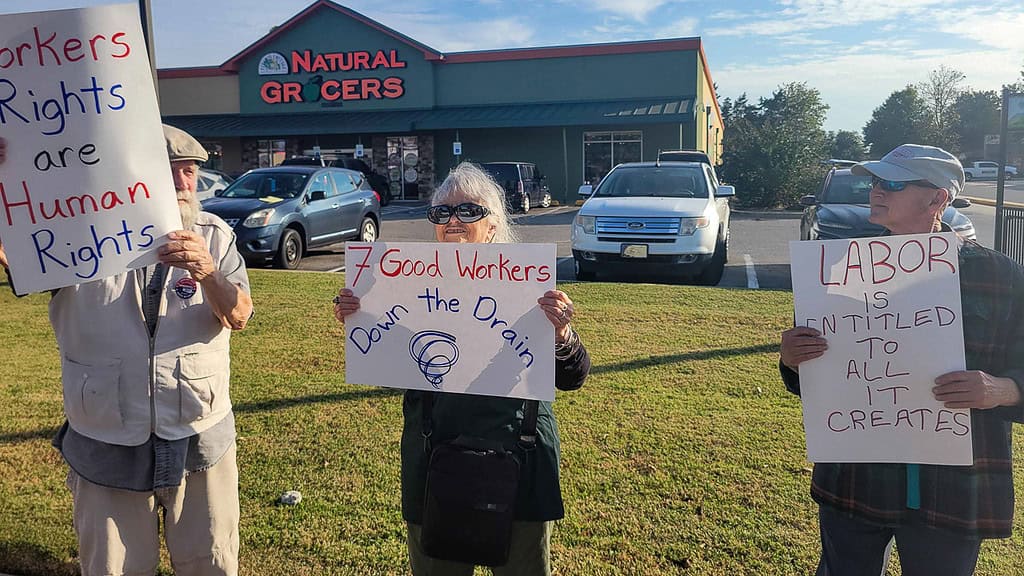 NATURAL
GROCERS
orkers
Rights
are
Human
Rights
7 Good Workers
Down the Drain
LABOR
IS
ENTITLED
TO
ALL
IT
CREATES